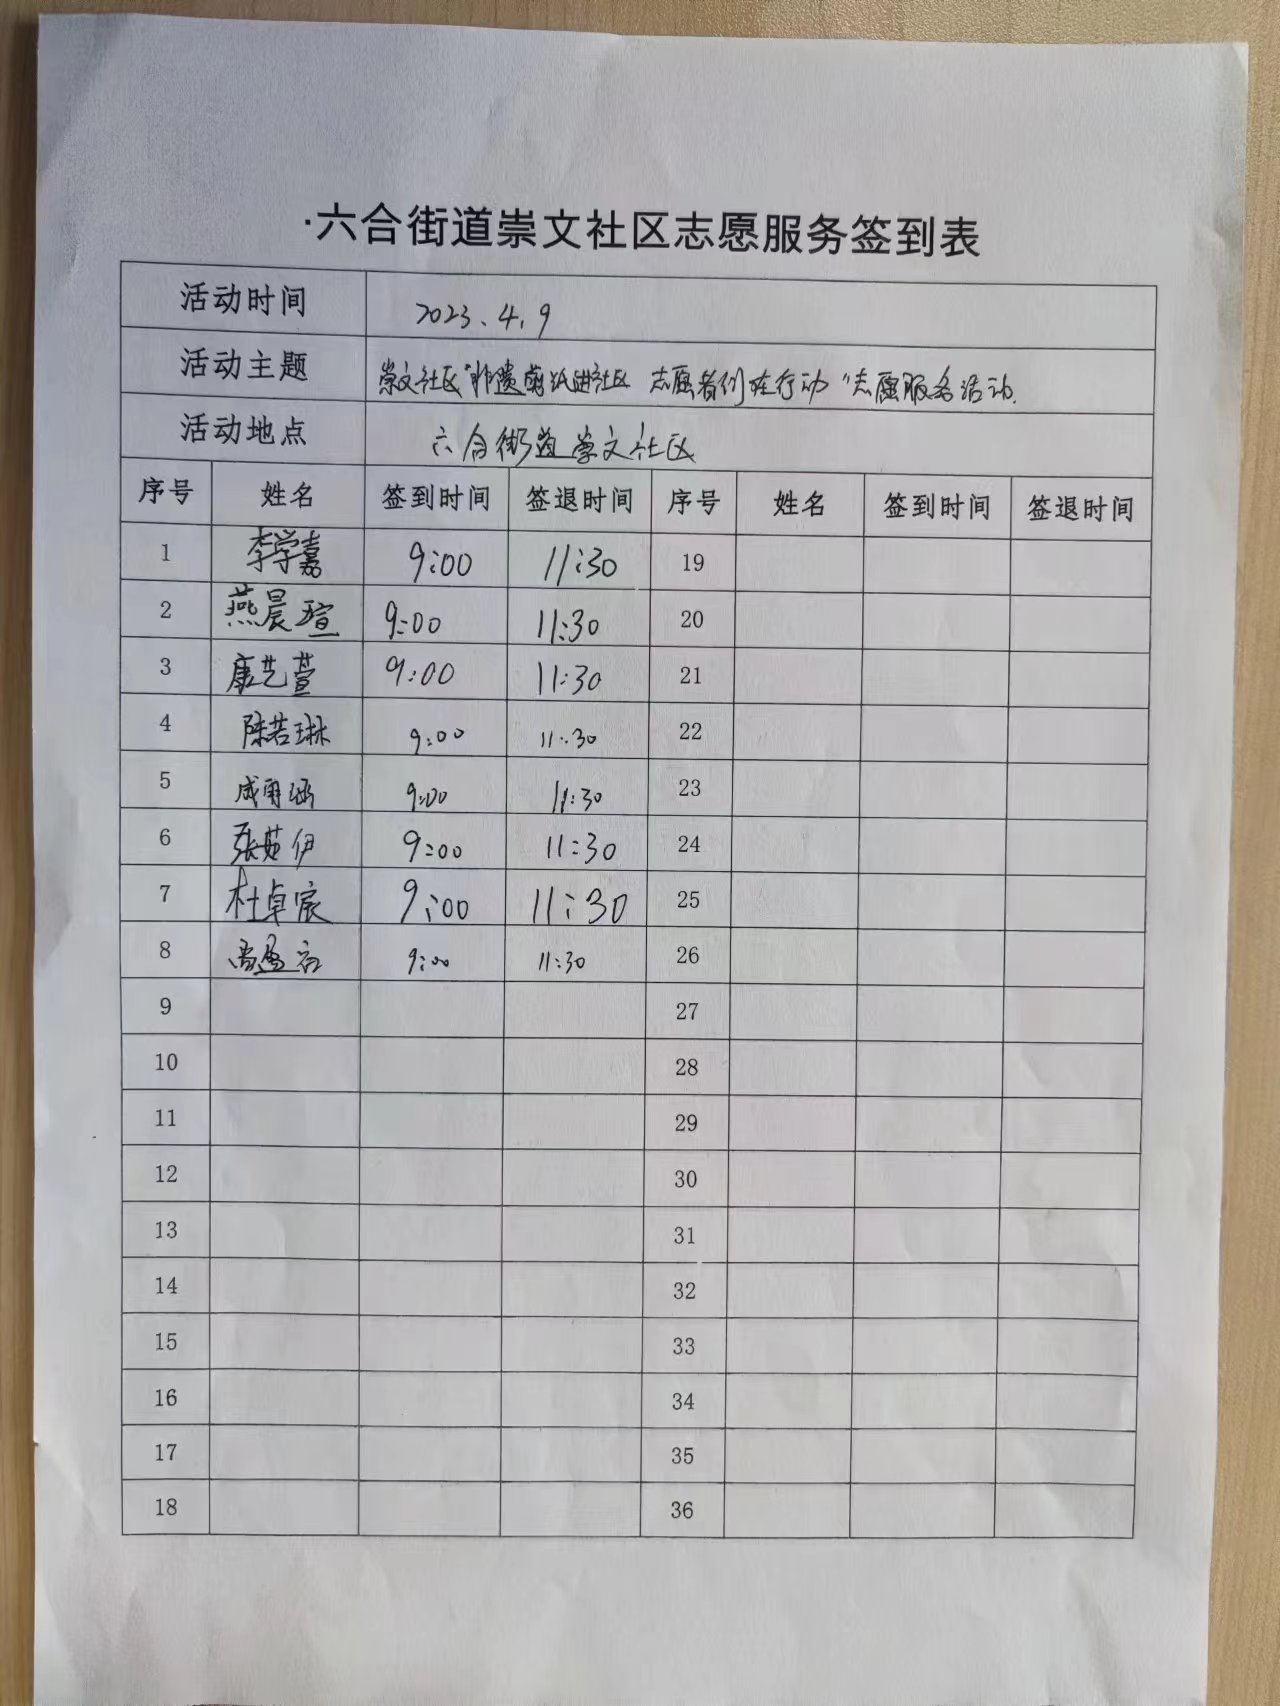 ·六合街道崇文社区志愿服务签到表
活动时间 2023.4.9
活动主题 崇文社区"非遗剪纸进社区 志愿者们在行动"志愿服务活动.
活动地点 六合街道崇文社区
序号 姓名 签到时间 签退时间 序号 姓名 签到时间 签退时间
1 李学嘉 9:00 11:30 19
2 燕晨瑄 9:00 11:30 20
3 康艺萱 9:00 11:30 21
4 陈若琳 9:00 11:30 22
5 成雨涵 9:00 11:30 23
6 张茹伊 9:00 11:30 24
7 杜卓宸 9:00 11:30 25
8 9:00 11:30 26
9 27
10 28
11 29
12 30
13 31
14 32
15 33
16 34
17 35
18 36